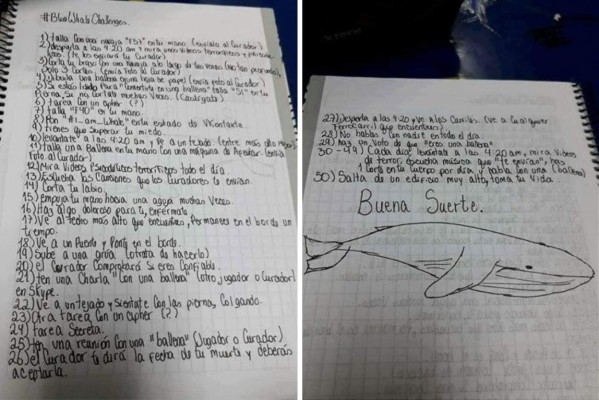 #BlueWhaleChallenge.
1) talla con una navaja "F57" en tu mano (envíalo al Curador)
2) despierta a las 4:20 am y mira unos videos terroríficos y psicodé
licos. (te los enviará tu Curador)
3) Corta tu brazo con una navaja a lo largo de tus venas (no tan profundo),
solo 3 Cortes. (envía foto al Curador)
4) dibuja una ballena en una hoja de papel (envía foto al Curador)
5) Si estás listo para "Convertirte en una ballena" talla "SI" en tu
Pierna, Si no cortate muchas veces. (Castigate)
6) tarea con un cipher (?)
7) talla "F40" en tu mano.
8) Pon "#i_am_whale" en tu estado de VKontakte.
9) tienes que superar tu miedo.
10) levantate a las 4:20 am y ve a un tejado (entre más alto mejor)
11) talla una Ballena en tu mano con una
foto al Curador)
12) Mira videos Psicodélicos terroríficos todo el día.
13) Escucha las Canciones que los Curadores te envían.
14) Corta tu labio.
15) Empuja tu mano hacia una aguja muchas Veces.
16) Has algo doloroso para ti, enfermate.
17) Ve al techo más alto que encuentres, Permanece en el borde un
tiempo.
18) Ve a un Puente y Ponte en el borde.
19) Sube a una grúa (o trata de hacerlo)
20) el Curador Comprobará Si eres Confiable.
21) ten una Charla "Con una ballena" (otro jugador o Curador)
en Skype.
22) Ve a un tejado y sientate Con las piernas Colgando.
23) Otra tarea Con un cipher (?)
24) tarea Secreta.
25) ten una reunión Con una "ballena" (Jugador o Curador)
26) el Curador te dirá la fecha de tu muerte y deberás
aceptarla.
27) Despierta a las 4:20 y Ve a las Carriles. (Ve a Cualquier
ferrocarril que encuentres).
28) No hables Con nadie en todo el día.
29) haz un Voto de que "eres una ballena"
30-49) Cada día despierta a las 4:20 am, mira Videos
de terror, escucha música que "te envían", has
1 Corte en tu Cuerpo por día y habla con una (ballena)
50) Salta de un edificio muy alto, toma tu Vida.
Buena Suerte.